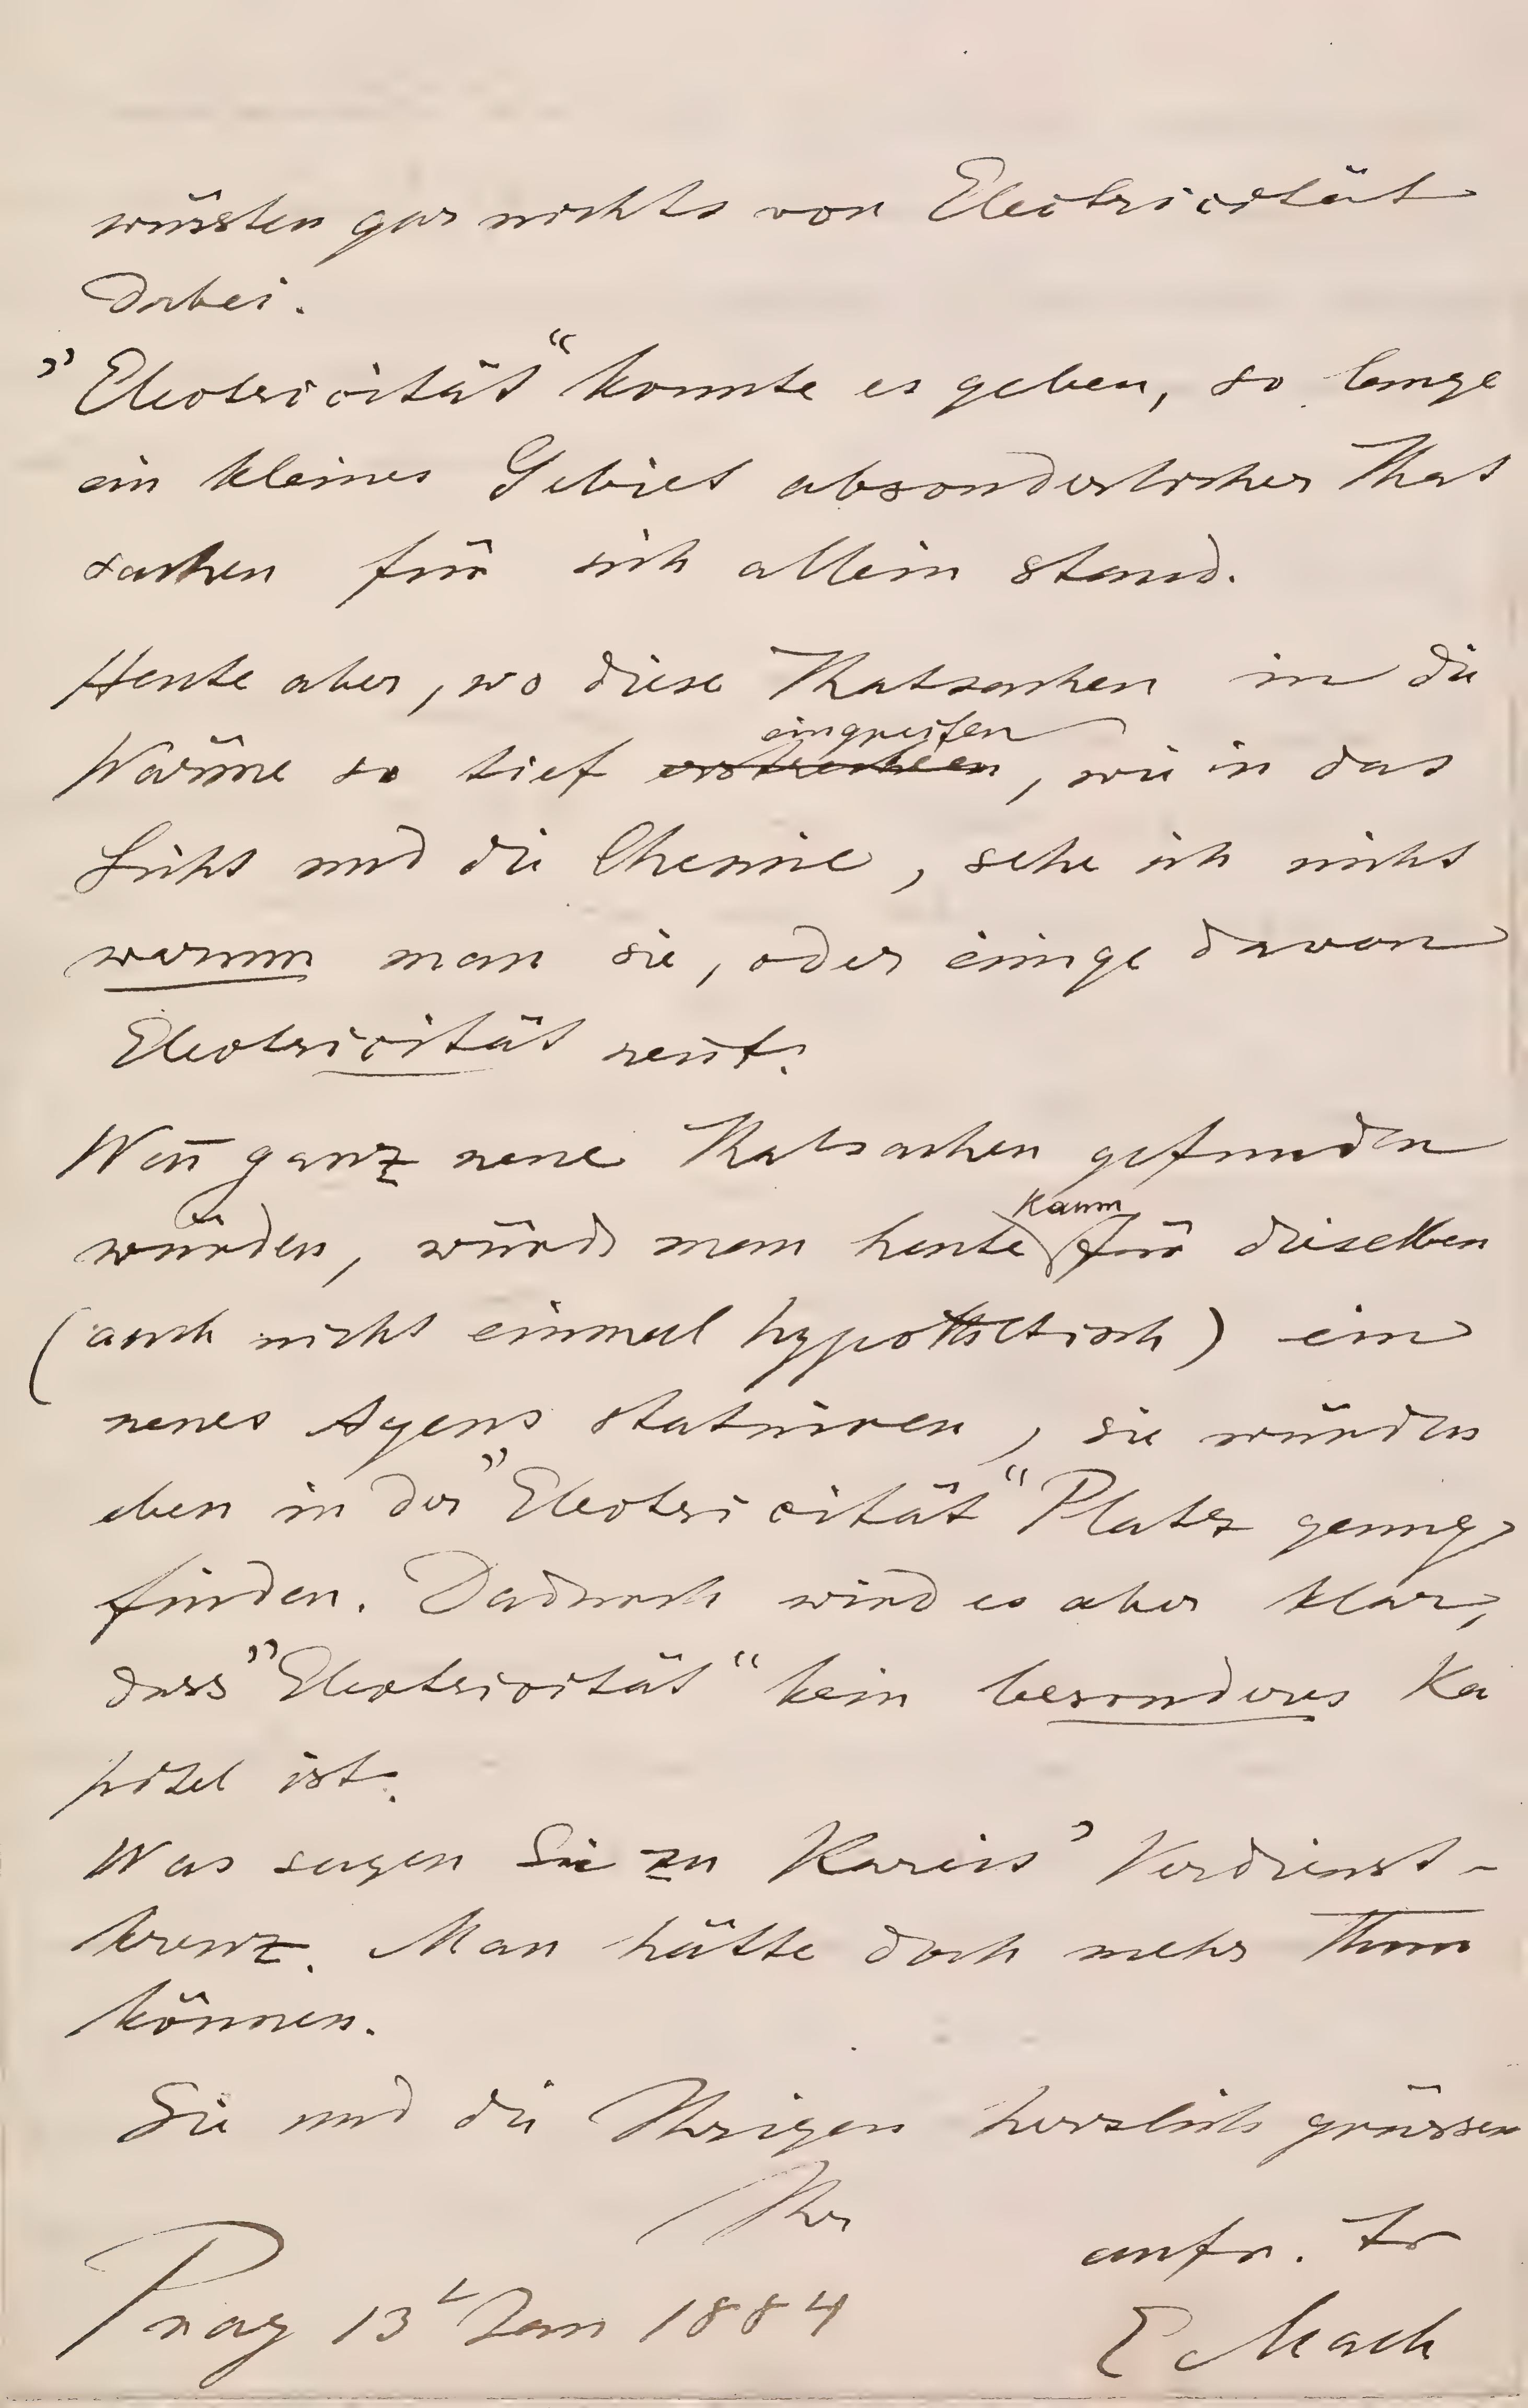 wüssten gar nichts von Electricität
dabei.
„Electricität“ konnte es geben, so lange
ein kleines Gebiet absonderlicher That
sachen für sich allein stand.
Heute aber, wo diese Thatsachen in die
eingreifen
Wärme so tief erstrecken, wie in das
Licht und die Chemie, sehe ich nicht
warum man sie, oder einige davon
Electricität nen̄t.
Wen̄ ganz neue Thatsachen gefunden
kaum
würden, würde man heute für dieselben
(auch nicht einmal hypothetisch) ein
neues Agens statuiren, sie würden
eben in der „Electricität“ Platz genug
finden. Dadurch wird es aber klar,
dass „Electricität“ kein besonderes Ka
pitel ist.
Was sagen Sie zu Kareis' Verdienst-
kreuz. Man hätte doch mehr thun
können.
Sie und die Ihrigen herzlich grüssen
Ihr
aufr. Er
Prag 13 Jan 1884
E Mach